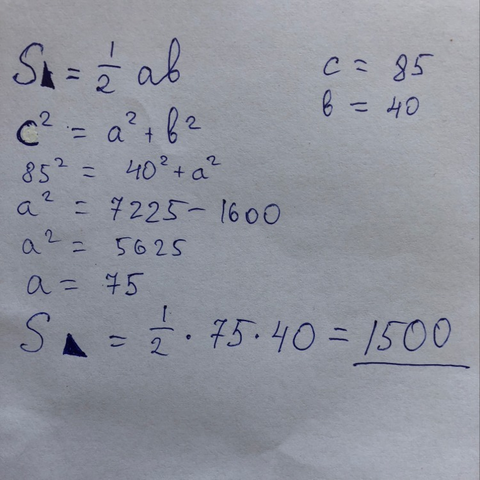 S◣ = 1/2 ab
c = 85
b = 40
c² = a² + b²
85² = 40² + a²
a² = 7225 - 1600
a² = 5625
a = 75
S◣ = 1/2 · 75 · 40 = 1500